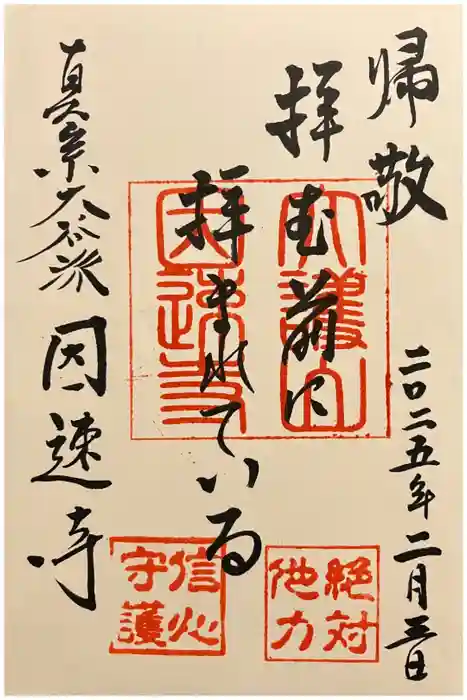 帰敬
二〇二五年二月三日
拝む前に
拝まれている
真宗大谷派 因速寺
大護山
因速寺
絶対
他力
信心
守護